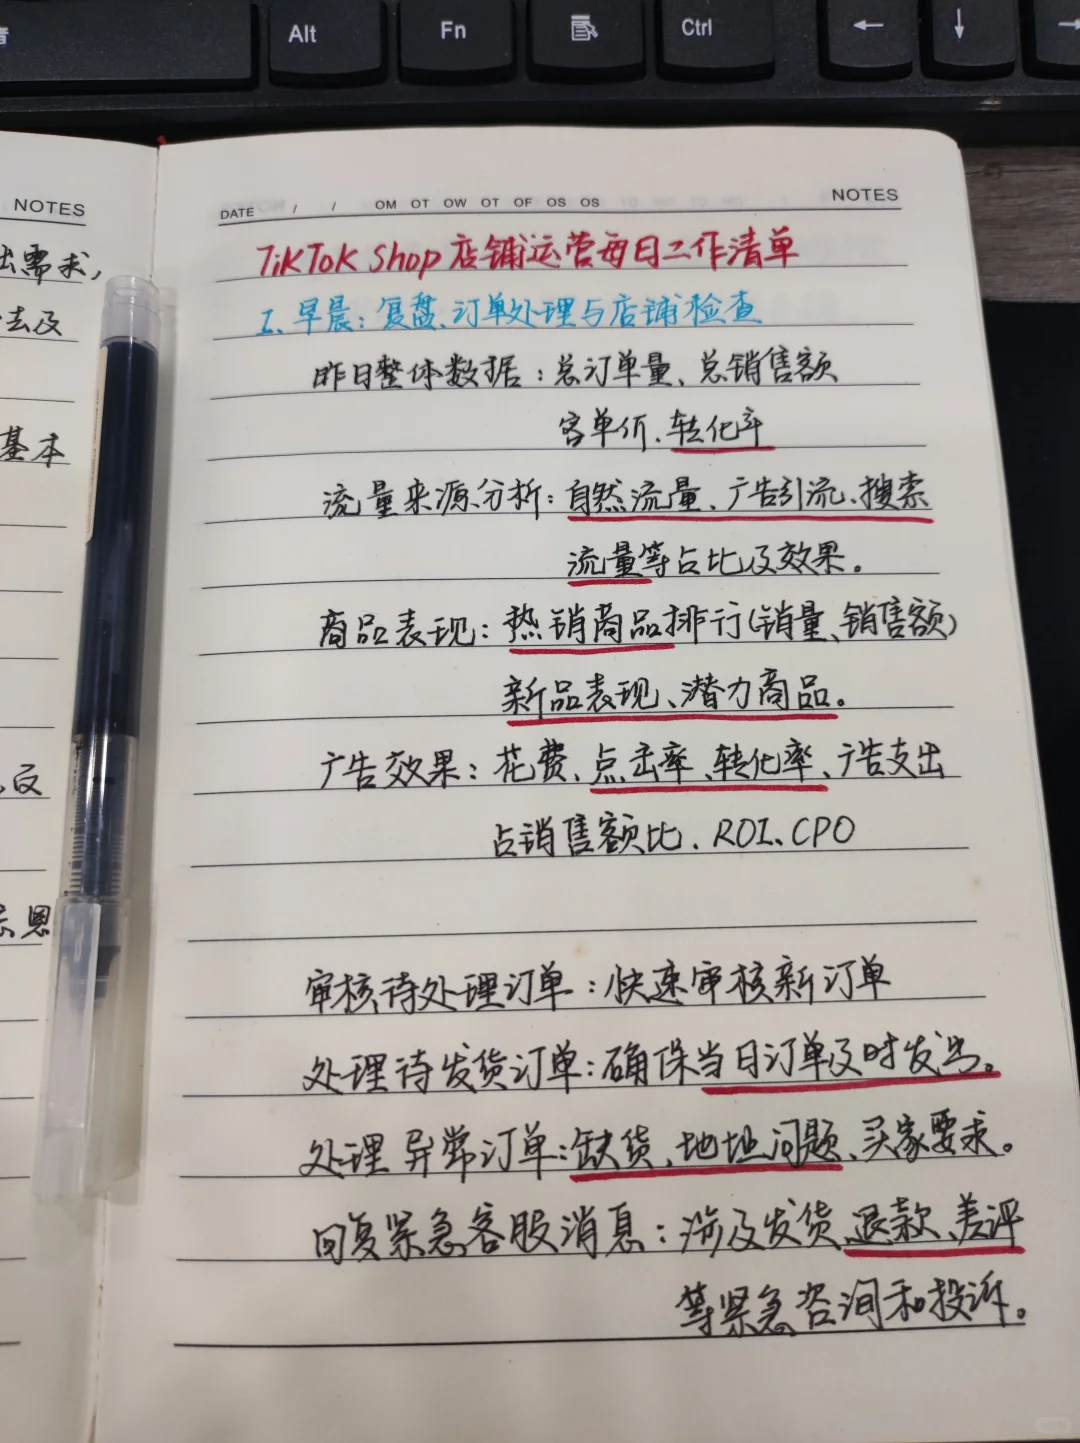 Alt
Fn
Ctrl
←
↓
→
NOTES
出需求,
去及
基本
反
恩
DATE / / OM OT OW OT OF OS OS NOTES
TikTok Shop 店铺运营每日工作清单
I、早晨：复盘、订单处理与店铺检查
昨日整体数据：总订单量、总销售额
客单价、转化率
流量来源分析：自然流量、广告引流、搜索
流量等占比及效果。
商品表现：热销商品排行(销量、销售额)
新品表现、潜力商品。
广告效果：花费、点击率、转化率、广告支出
占销售额比、ROI、CPO
审核待处理订单：快速审核新订单
处理待发货订单：确保当日订单及时发出。
处理异常订单：缺货、地址问题、买家要求。
回复紧急客服消息：涉及发货、退款、差评
等紧急咨询和投诉。